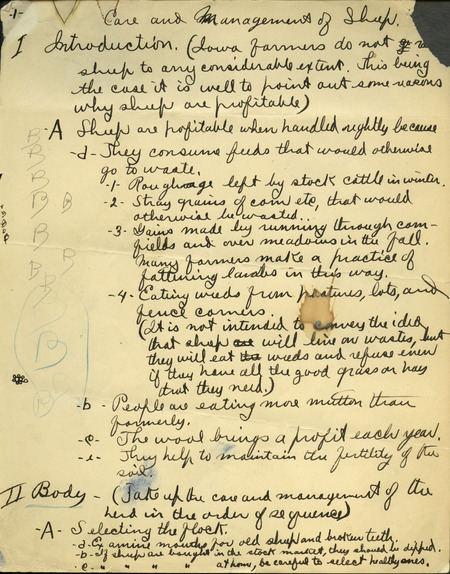 -1-
Care and Management of Sheep.
I Introduction. (Iowa farmers do not
sheep to any considerable extent. This being
the case it is well to point out some reasons
why sheep are profitable)
-A Sheep are profitable when handled rightly because
-a- They consume feeds that would otherwise
go to waste.
-1- Roughage left by stock cattle in winter.
-2- Stray grains of corn etc, that would
otherwise be wasted..
-3- Gains made by running through corn-
fields and over meadows in the fall.
Many farmers make a practice of
fattining lambs in this way.
-4- Eating weeds from pastures, lots, and
fence corners.
(It is not intended to convey the idea
that sheep will live on wastes, but
they will eat weeds and refuse even
if they have all the good grass or hay
that they need.)
-b- People are eating more mutton than
formerly.
-c- The wool brings a profit each year.
-e- They help to maintain the fertility of the
soil.
II Body - (Take up the care and management of the
herd in the order of sequence)
-A- Selecting the flock.
-a- Examine mouths for old sheep and broken teeth.
-b- If sheep are bought in the stock market, they should be dipped.
-c- " " " " at home, be careful to select healthy ones.
B
B
B
B
B
B
B
B
B
B
B